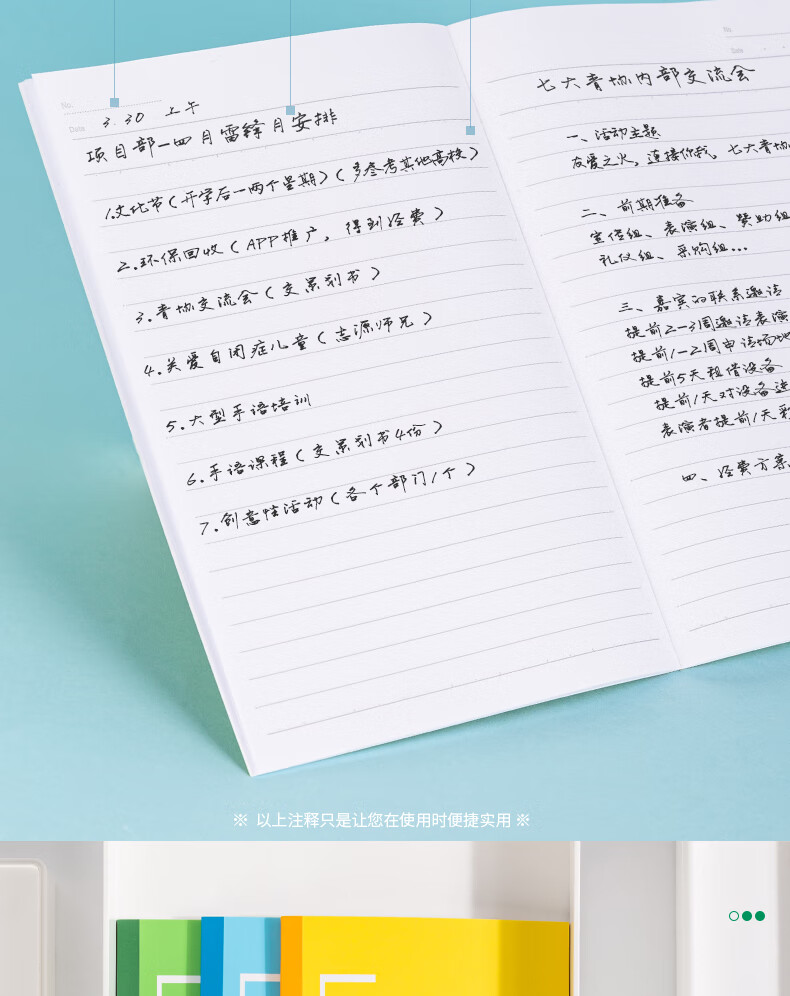 No.
Date
3.30 上午
项目部一四月雷锋月安排
1.文化节(开学后一两个星期)(多参考其他高校)
2.环保回收(APP推广,得到经费)
3.青协交流会(交策划书)
4.关爱自闭症儿童(志源师兄)
5.大型手语培训
6.手语课程(交策划书4份)
7.创意性活动(各个部门1个)
No.
Date
七大青协内部交流会
一、活动主题
友爱之火,连接你我,七大青协
二、前期准备
宣传组、表演组、赞助组
礼仪组、采购组...
三、嘉宾的联系邀请
提前2-3周邀请表演
提前1-2周申请场地
提前5天租借设备
提前1天对设备进
表演者提前1天彩
四、经费方案
※ 以上注释只是让您在使用时便捷实用 ※